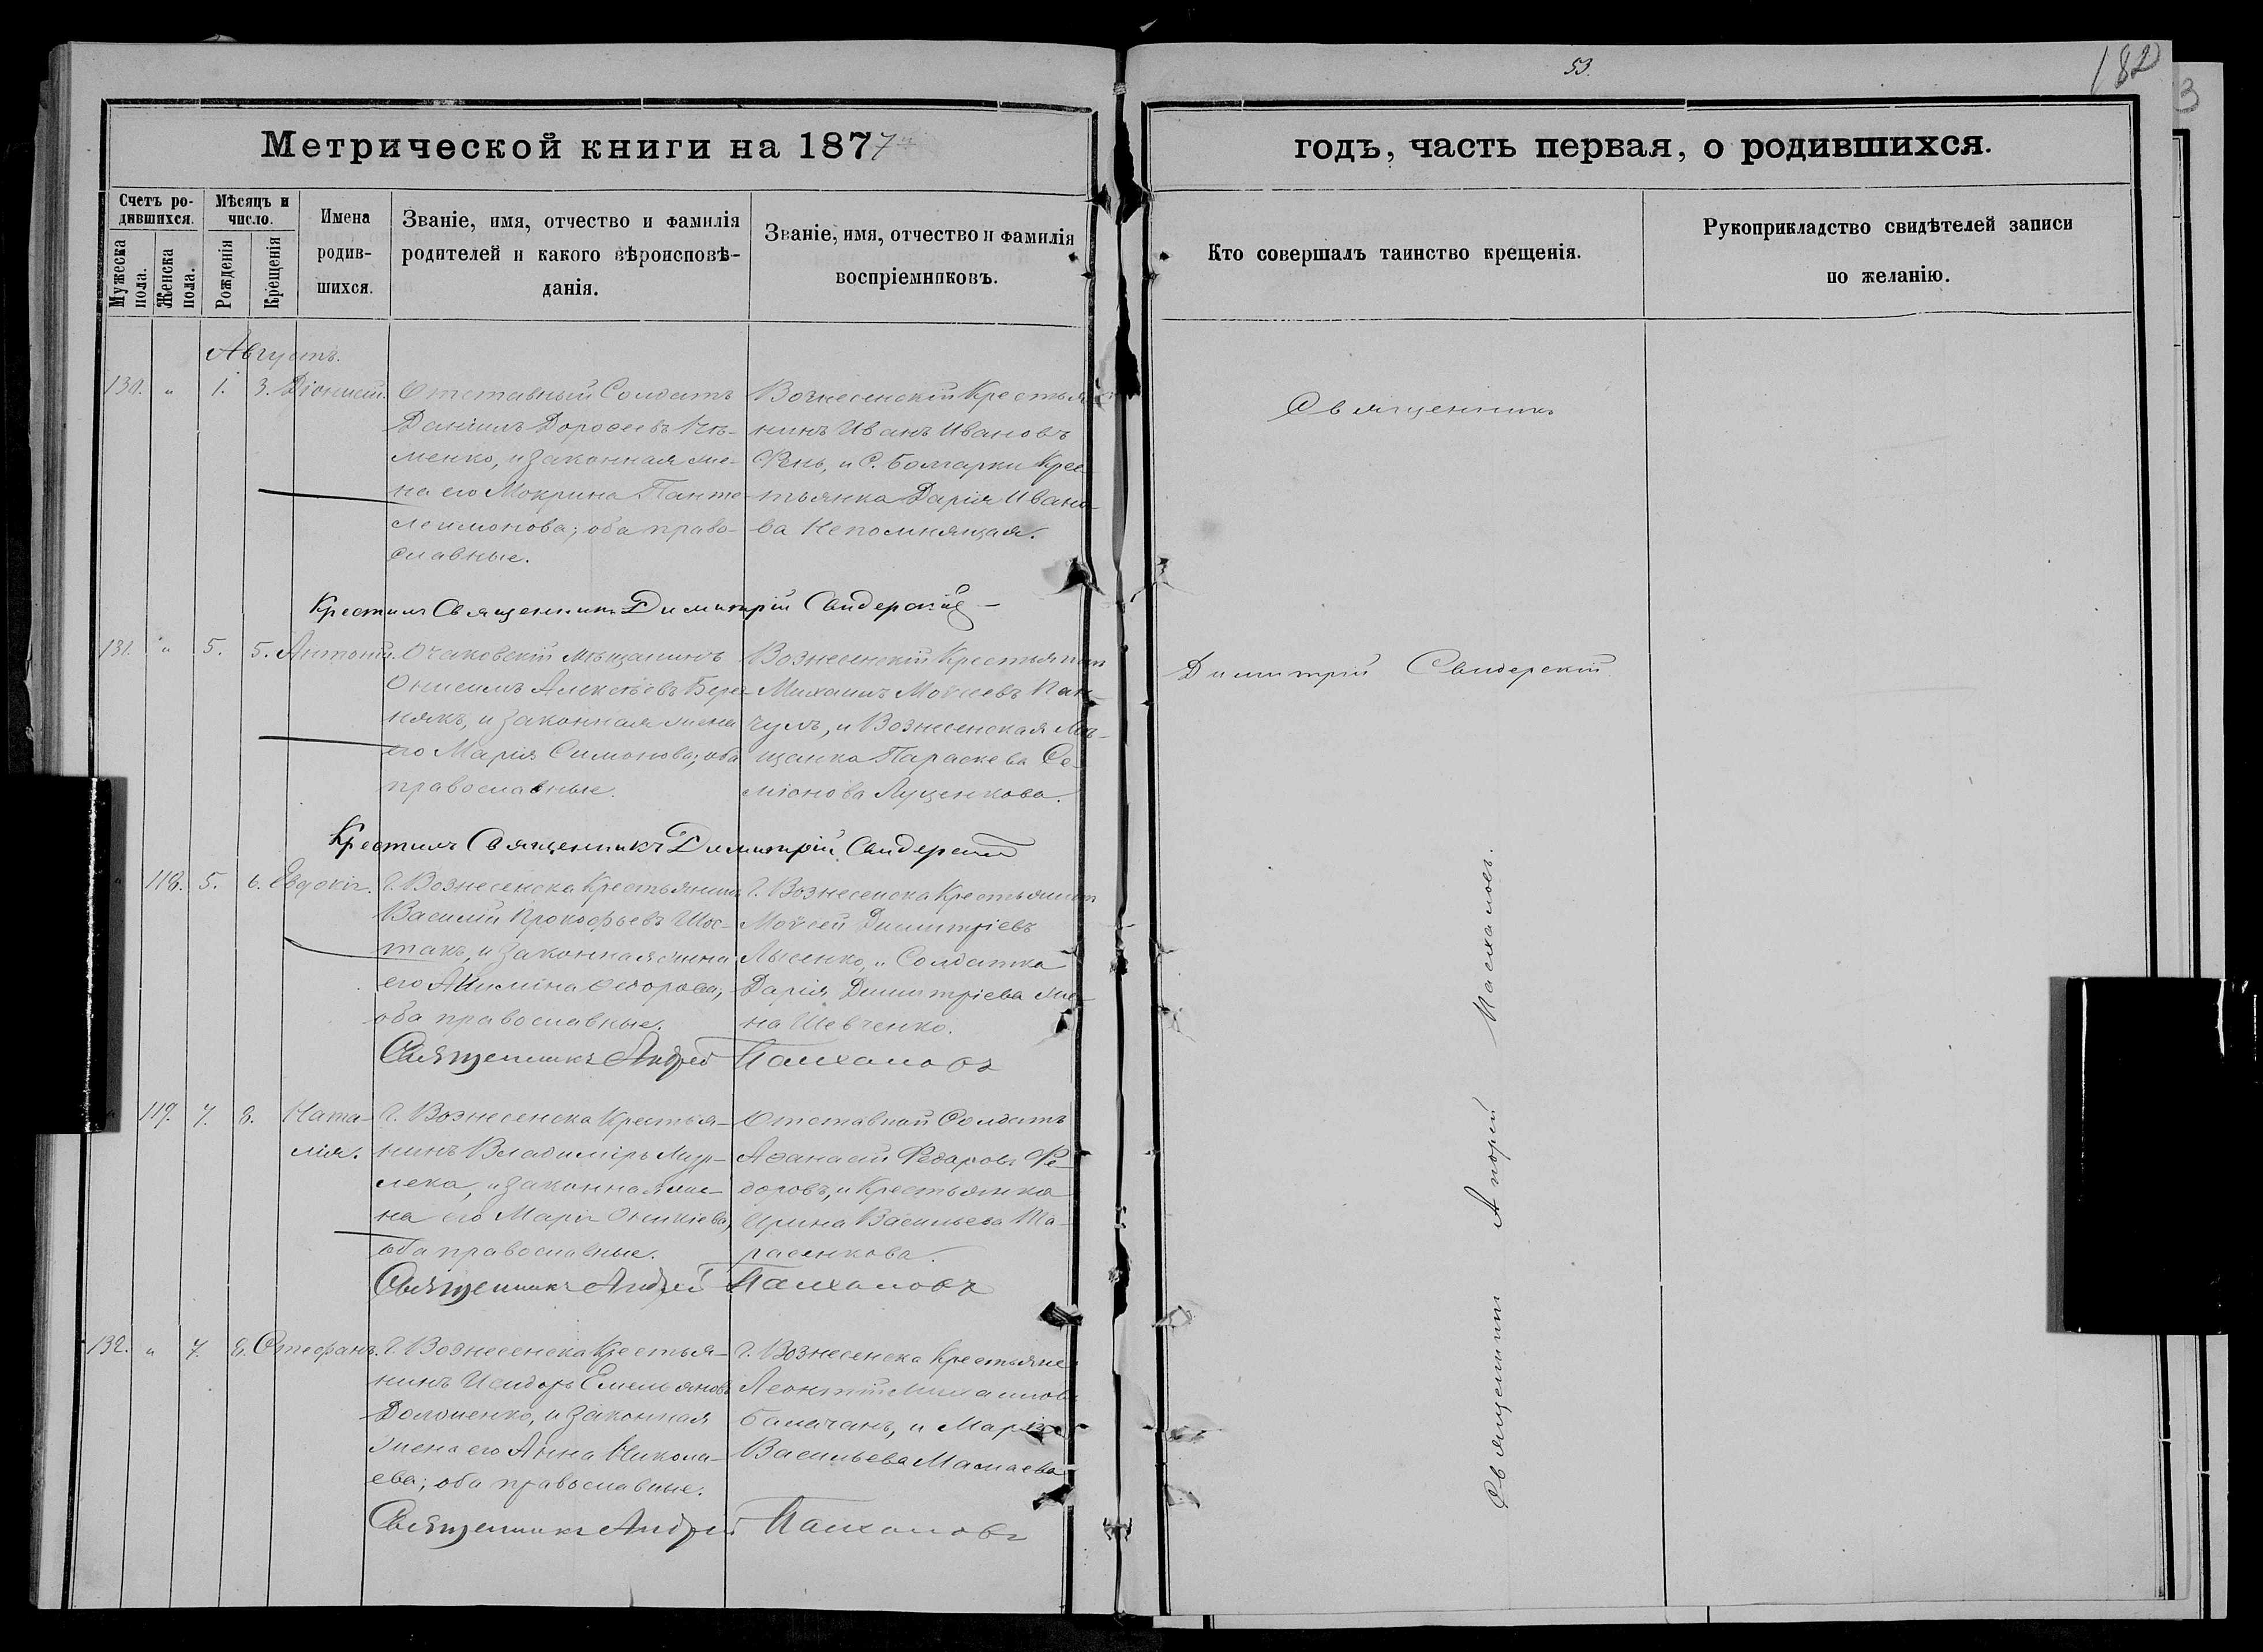 53.
182
3
Метрической книги на 1877
годъ, часть первая, о родившихся.
Счетъ ро-
дившихся.
Мужеска
пола.
Женска
пола.
Мѣсяцъ и
число.
Рожденія
Крещенія
Имена
родив-
шихся.
Званіе, имя, отчество и фамилія
родителей и какого вѣроисповѣ-
данія.
Званіе, имя, отчество и фамилія
воспріемниковъ.
Кто совершалъ таинство крещенія.
Рукоприкладство свидѣтелей записи
по желанію.
Августъ.
130. " 1. 3. Діонисій.
Отставный Солдатъ
Даніилъ Дорофеевъ
менко, и законная же-
на его Мокрина Панте
леимонова; оба право-
славные.
Вознесенскій Крестья
нинъ Иванъ Ивановъ
Фень, и С. Болгарки Крес
тьянка Дарія Ивано
ва Непомнящая.
Священникъ
Крестилъ Священникъ Димитрій Свидерскій
131. " 5. 5. Антоній.
Очаковскій мѣщанинъ
Онисимъ Алексѣевъ Берез
някъ, и законная жена
его Марія Симонова; оба
православные.
Вознесенскій Крестьянинъ
Михаилъ Моѵсеевъ Кан
чулъ, и Вознесенская Мѣ-
щанка Параскева Се-
міонова Луценкова.
Димитрій Свидерскій
Крестилъ Священникъ Димитрій Свидерскій
" 118. 5. 6. Евдокія.
Г. Вознесенска Крестьянинъ
Василій Прокофьевъ Шос-
такъ, и законная жена
его Акилина Ѳедорова;
оба православные.
Г. Вознесенска Крестьянинъ
Моѵсей Димитріевъ
Лысенко, и Солдатка
Дарія Димитріева же-
на Шевченко.
Священникъ Андрей Пасхаловъ
119. 7. 8. Ната-
лія.
Г. Вознесенска Крестья-
нинъ Владиміръ
лека, и законная же-
на его Марія Оникіева;
оба православные.
Отставной Солдатъ
Аѳанасій Федоровъ Фе-
доровъ, и Крестьянка
Ирина Васильева Та-
расенкова.
Священникъ Андрей Пасхаловъ
132. " 7. 8. Стефанъ.
Г. Вознесенска Крестья-
нинъ Исидоръ Емельяновъ
Доломенко, и законная
жена его Анна Никола-
ева; оба православные.
Г. Вознесенска Крестьяне
Леонтій Михаиловъ
Балачанъ, и Марія
Васильева Мамаева
Священникъ Андрей Пасхаловъ
Священникъ Андрей Пасхаловъ.